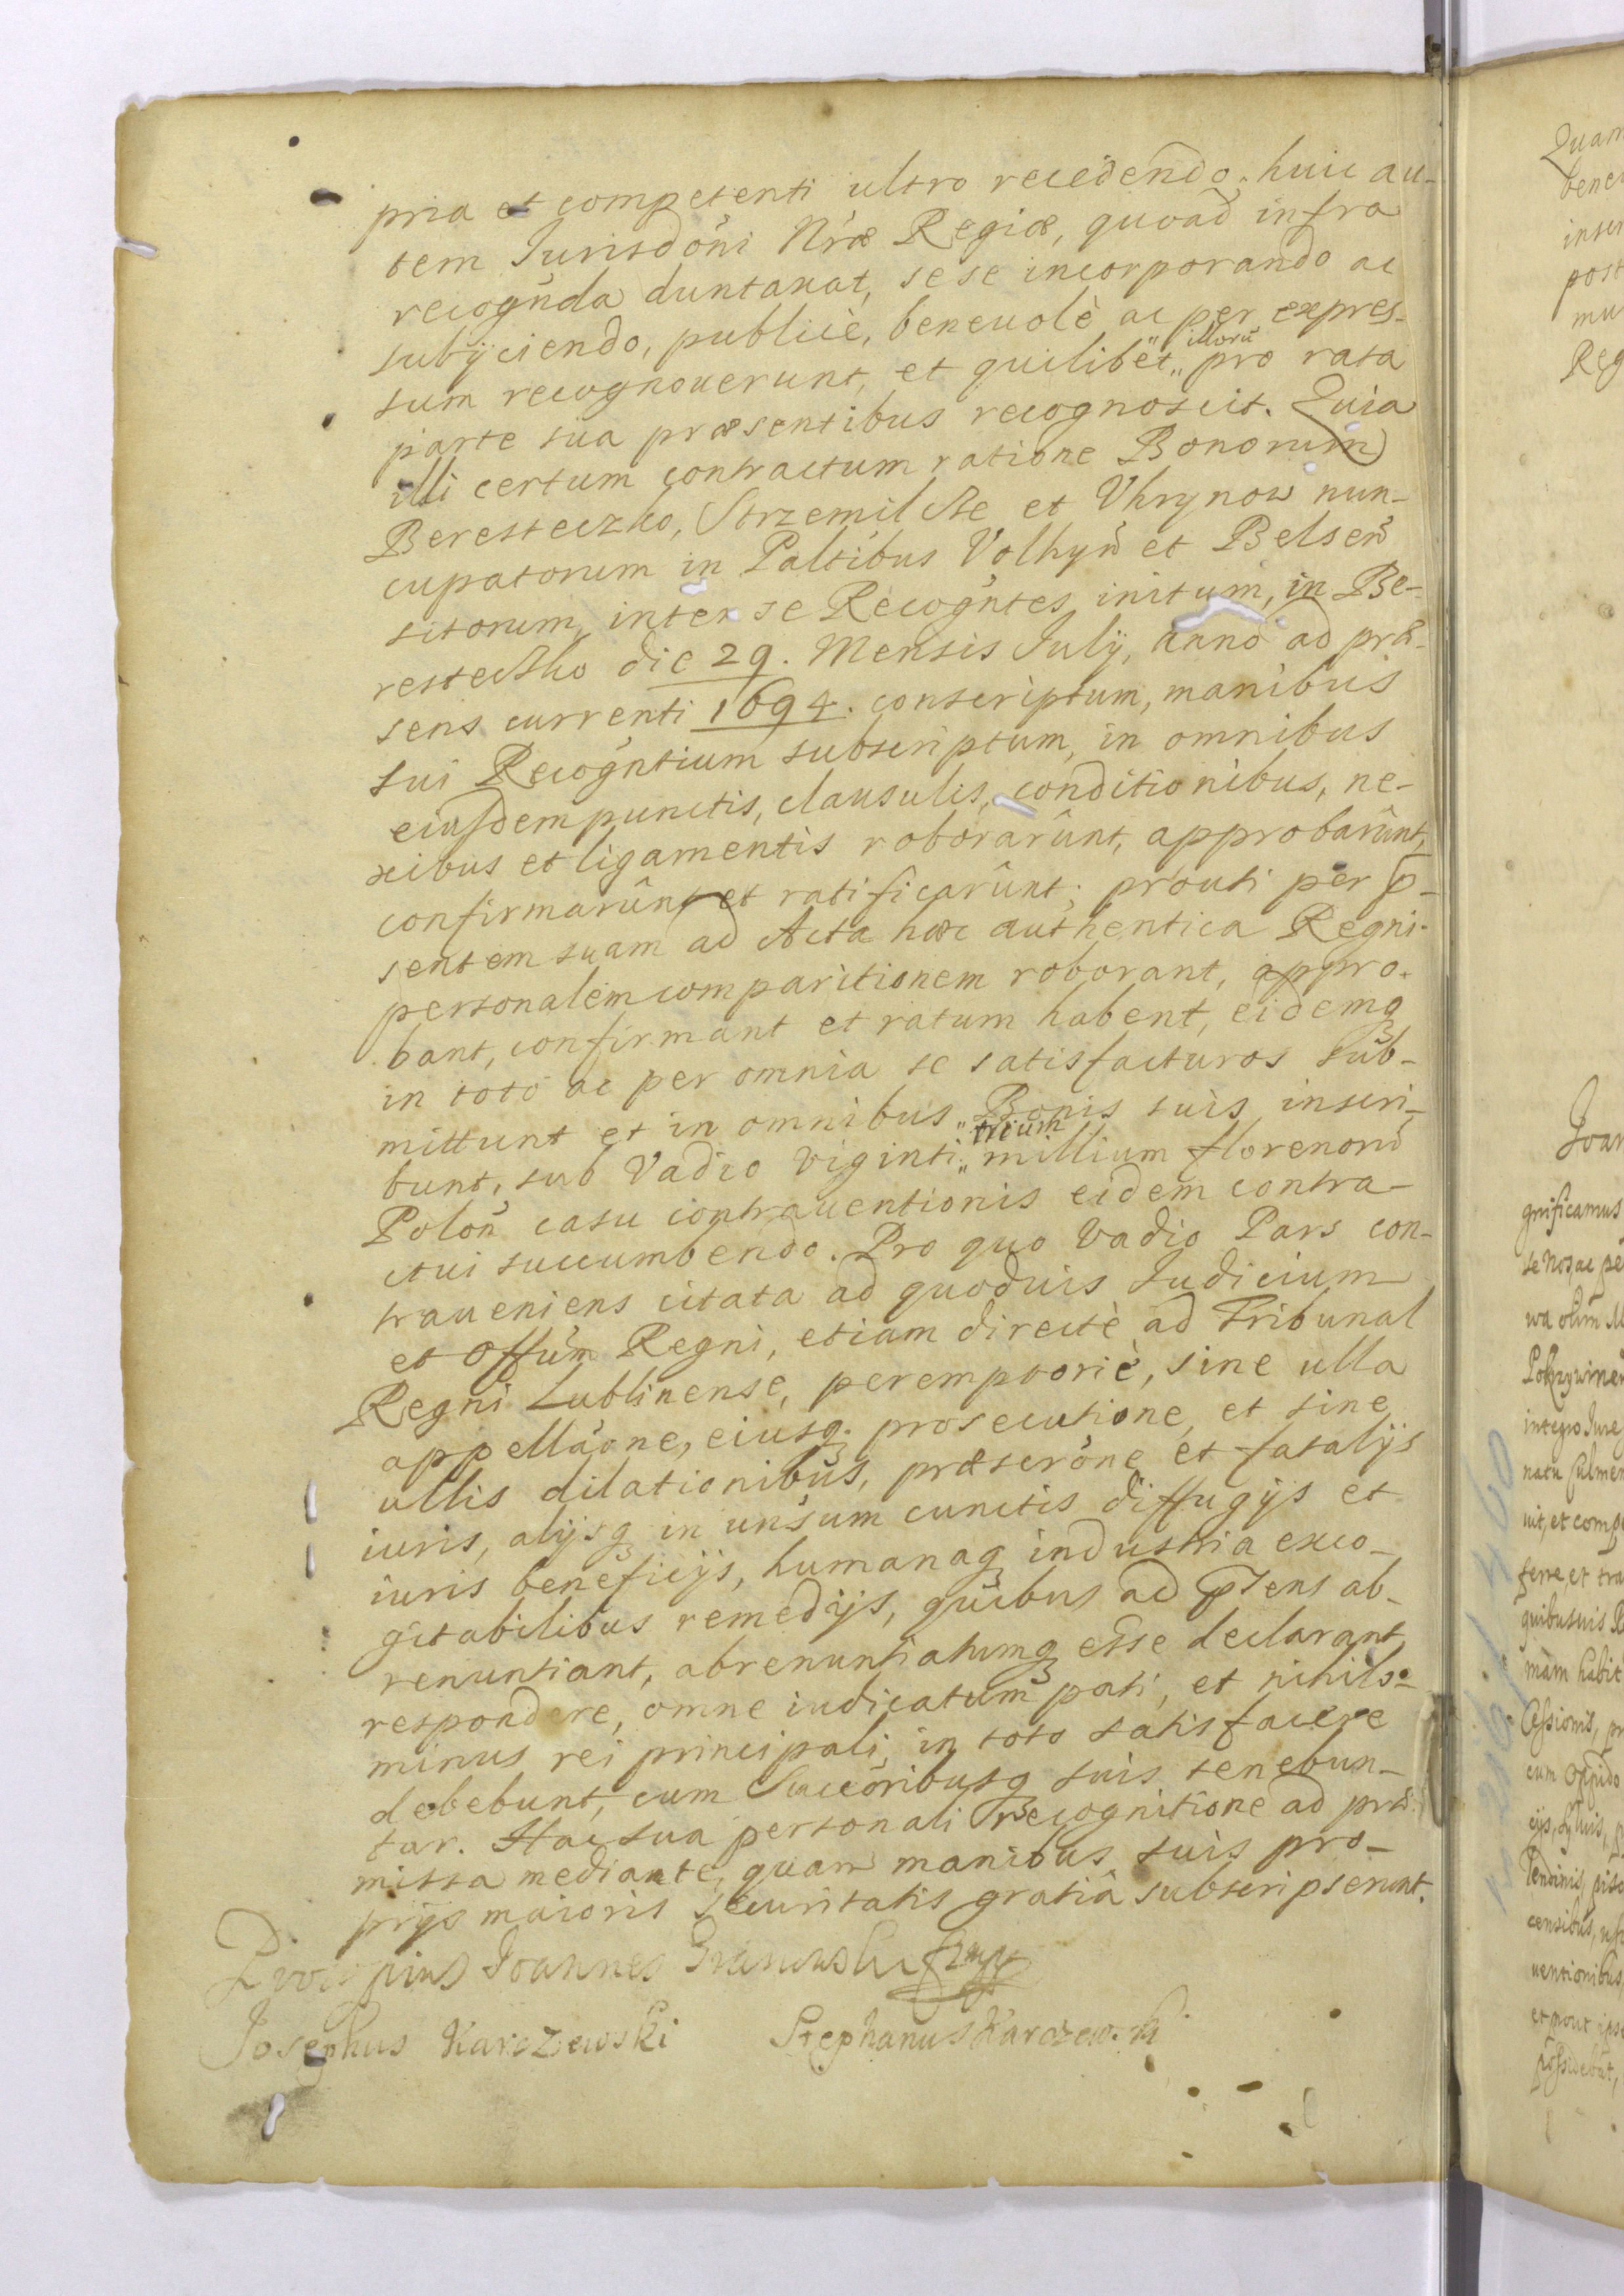 pria et competenti ultro recedendo, huic au-
tem Jurisdōni Nrae Regiae, quoad infra
recognda duntaxat, sese incorporando ac
subijciendo, publicè, beneuolè ac per expres-
sum recognouerunt, et quilibet „ illorū pro rata
parte sua praesentibus recognoscit. Quia
illi certum contractum ratione Bonorum
Beresteczko, Strzemilcze et Uhrynow nun-
cupatorum in Paltibus Volhyn et Belsen
sitorum, inter se Recogntes initum, in Be-
resteczko die 29. Mensis July, anno ad prae-
sens currenti 1694. conscriptum, manibus
sui Recogntium subscriptum, in omnibus
eiusdem punctis, clausulis, conditionibus, ne-
xibus et ligamentis roborarunt, approbarunt,
confirmarunt et ratificarunt; prouti per p-
sentem suam ad Acta haec authentica Regni
personalem comparitionem roborant, appro-
bant, confirmant et ratum habent, eidemq
in toto ac per omnia se satisfacturos sub-
mittunt et in omnibus „ Bonis suis inscri-
bunt, sub Vadio viginti „ trium millium florenorū
Polon casu contrauentionis eidem contra-
ctui succumbendo. Pro quo vadio Pars con-
traueniens citata ad quoduis Judicium
et Offum Regni, etiam directè ad Tribunal
Regni Lublinense, peremptoriè, sine ulla
appellaōne, eiusq prosecutione, et sine
ullis dilationibus, praeserōne et fatalijs
iuris, alijsq in unsum cunctis diffugijs et
iuris beneficijs, humanaq industria exco-
gitabilibus remedijs, quibus ad psens ab-
renuntiant, abrenuntiatumq esse declarant,
respondere, omne iudicatum pati, et nihilo-
minus rei principali, in toto satisfacere
debebunt, cum Succōribusq suis tenebun-
tur. Hac sua personali recognitione ad prae-
missa mediante, quam manibus suis pro-
prijs maioris securitatis gratiâ subscripserunt.
Joannes
Josephus Karczewski Stephanus Karczewski